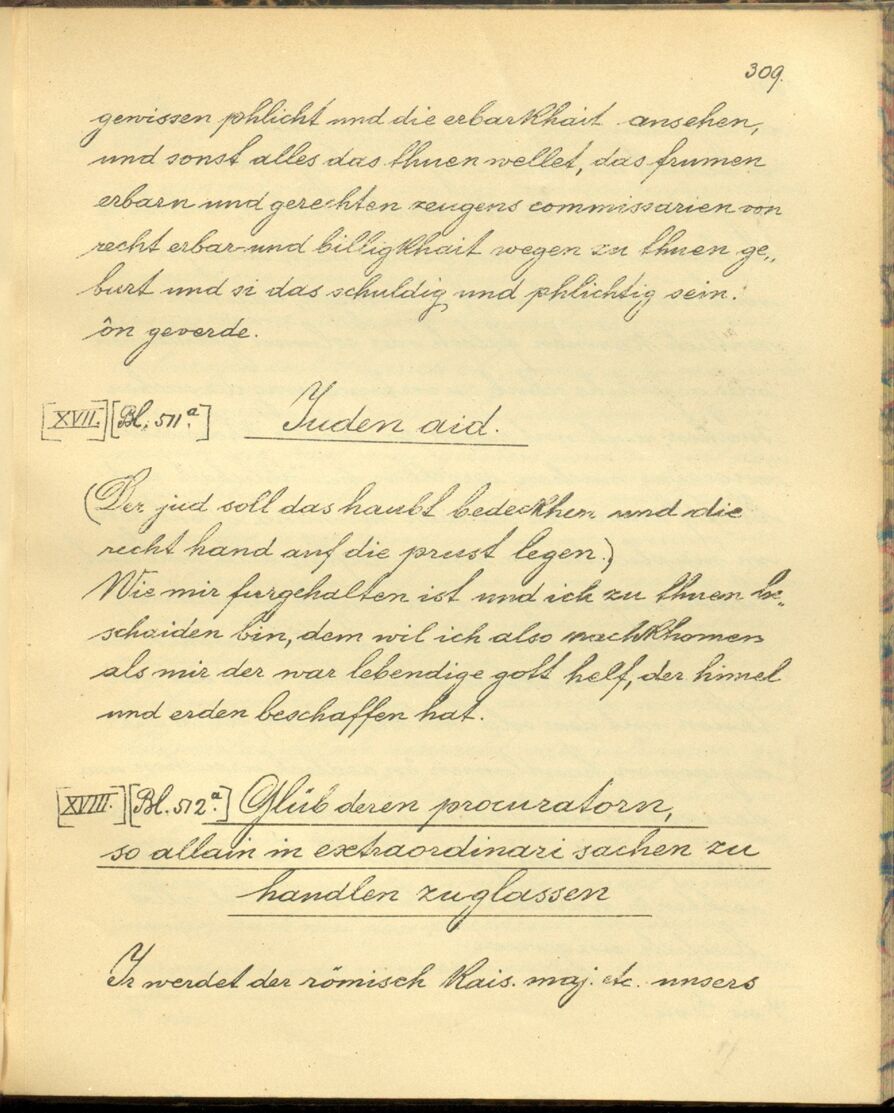 309.
gewissen phlicht und die erbarkhait ansehen,
und sonst alles das thuen wellet, das frumen
erbarn und gerechten zeugens commissarien von
recht erbar- und billigkhait wegen zu thuen ge„
burt und si das schuldig und phlichtig sein:
ôn geverde.
[XVII.] [Bl. 511a.] Juden aid.
(Der jud soll das haubt bedeckhen und die
recht hand auf die prust legen.)
Wie mir furgehalten ist und ich zu thuen be„
schaiden bin, dem wil ich also nachkhomen
als mir der war lebendige gott helf, der himel
und erden beschaffen hat.
[XVIII.] [Bl. 512a.] Glüb deren procuratorn,
so allain in extraordinari sachen zu
handlen zuglassen
Ir werdet der römisch kais. maj. etc. unsers